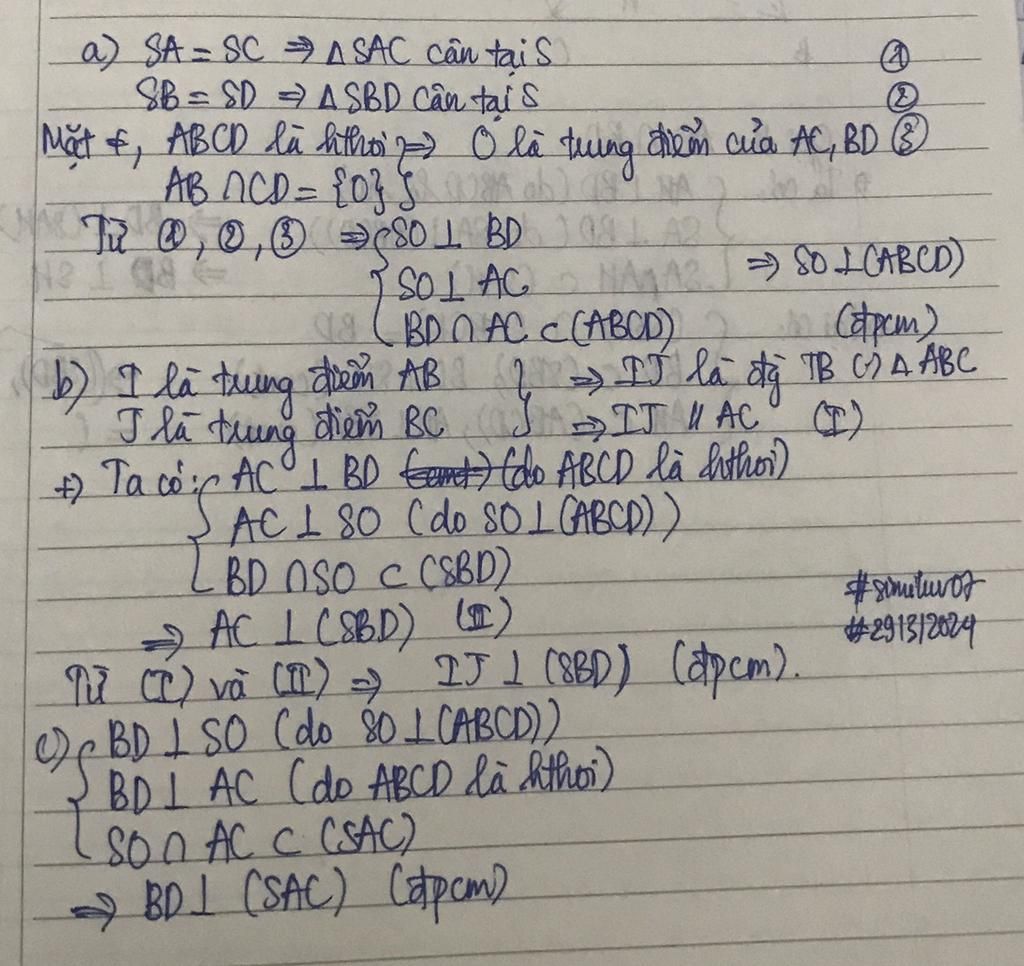 a) SA = SC ⇒ Δ SAC cân tại S ①
SB = SD ⇒ Δ SBD cân tại S ②
Mặt ≠, ABCD là hthoi } ⇒ O là trung điểm của AC, BD ③
AB ∩ CD = {O} }
Từ ①, ②, ③ ⇒ { SO ⊥ BD
SO ⊥ AC ⇒ SO ⊥ (ABCD)
BD ∩ AC ⊂ (ABCD) (đpcm)
b) I là trung điểm AB } ⇒ IJ là đg TB (-) Δ ABC
J là trung điểm BC } ⇒ IJ // AC (I)
+) Ta có: { AC ⊥ BD (do ABCD là hthoi)
AC ⊥ SO (do SO ⊥ (ABCD))
BD ∩ SO ⊂ (SBD)
⇒ AC ⊥ (SBD) (II)
#29/3/2024
Từ (I) và (II) ⇒ IJ ⊥ (SBD) (đpcm).
c) { BD ⊥ SO (do SO ⊥ (ABCD))
BD ⊥ AC (do ABCD là hthoi)
SO ∩ AC ⊂ (SAC)
⇒ BD ⊥ (SAC) (đpcm)